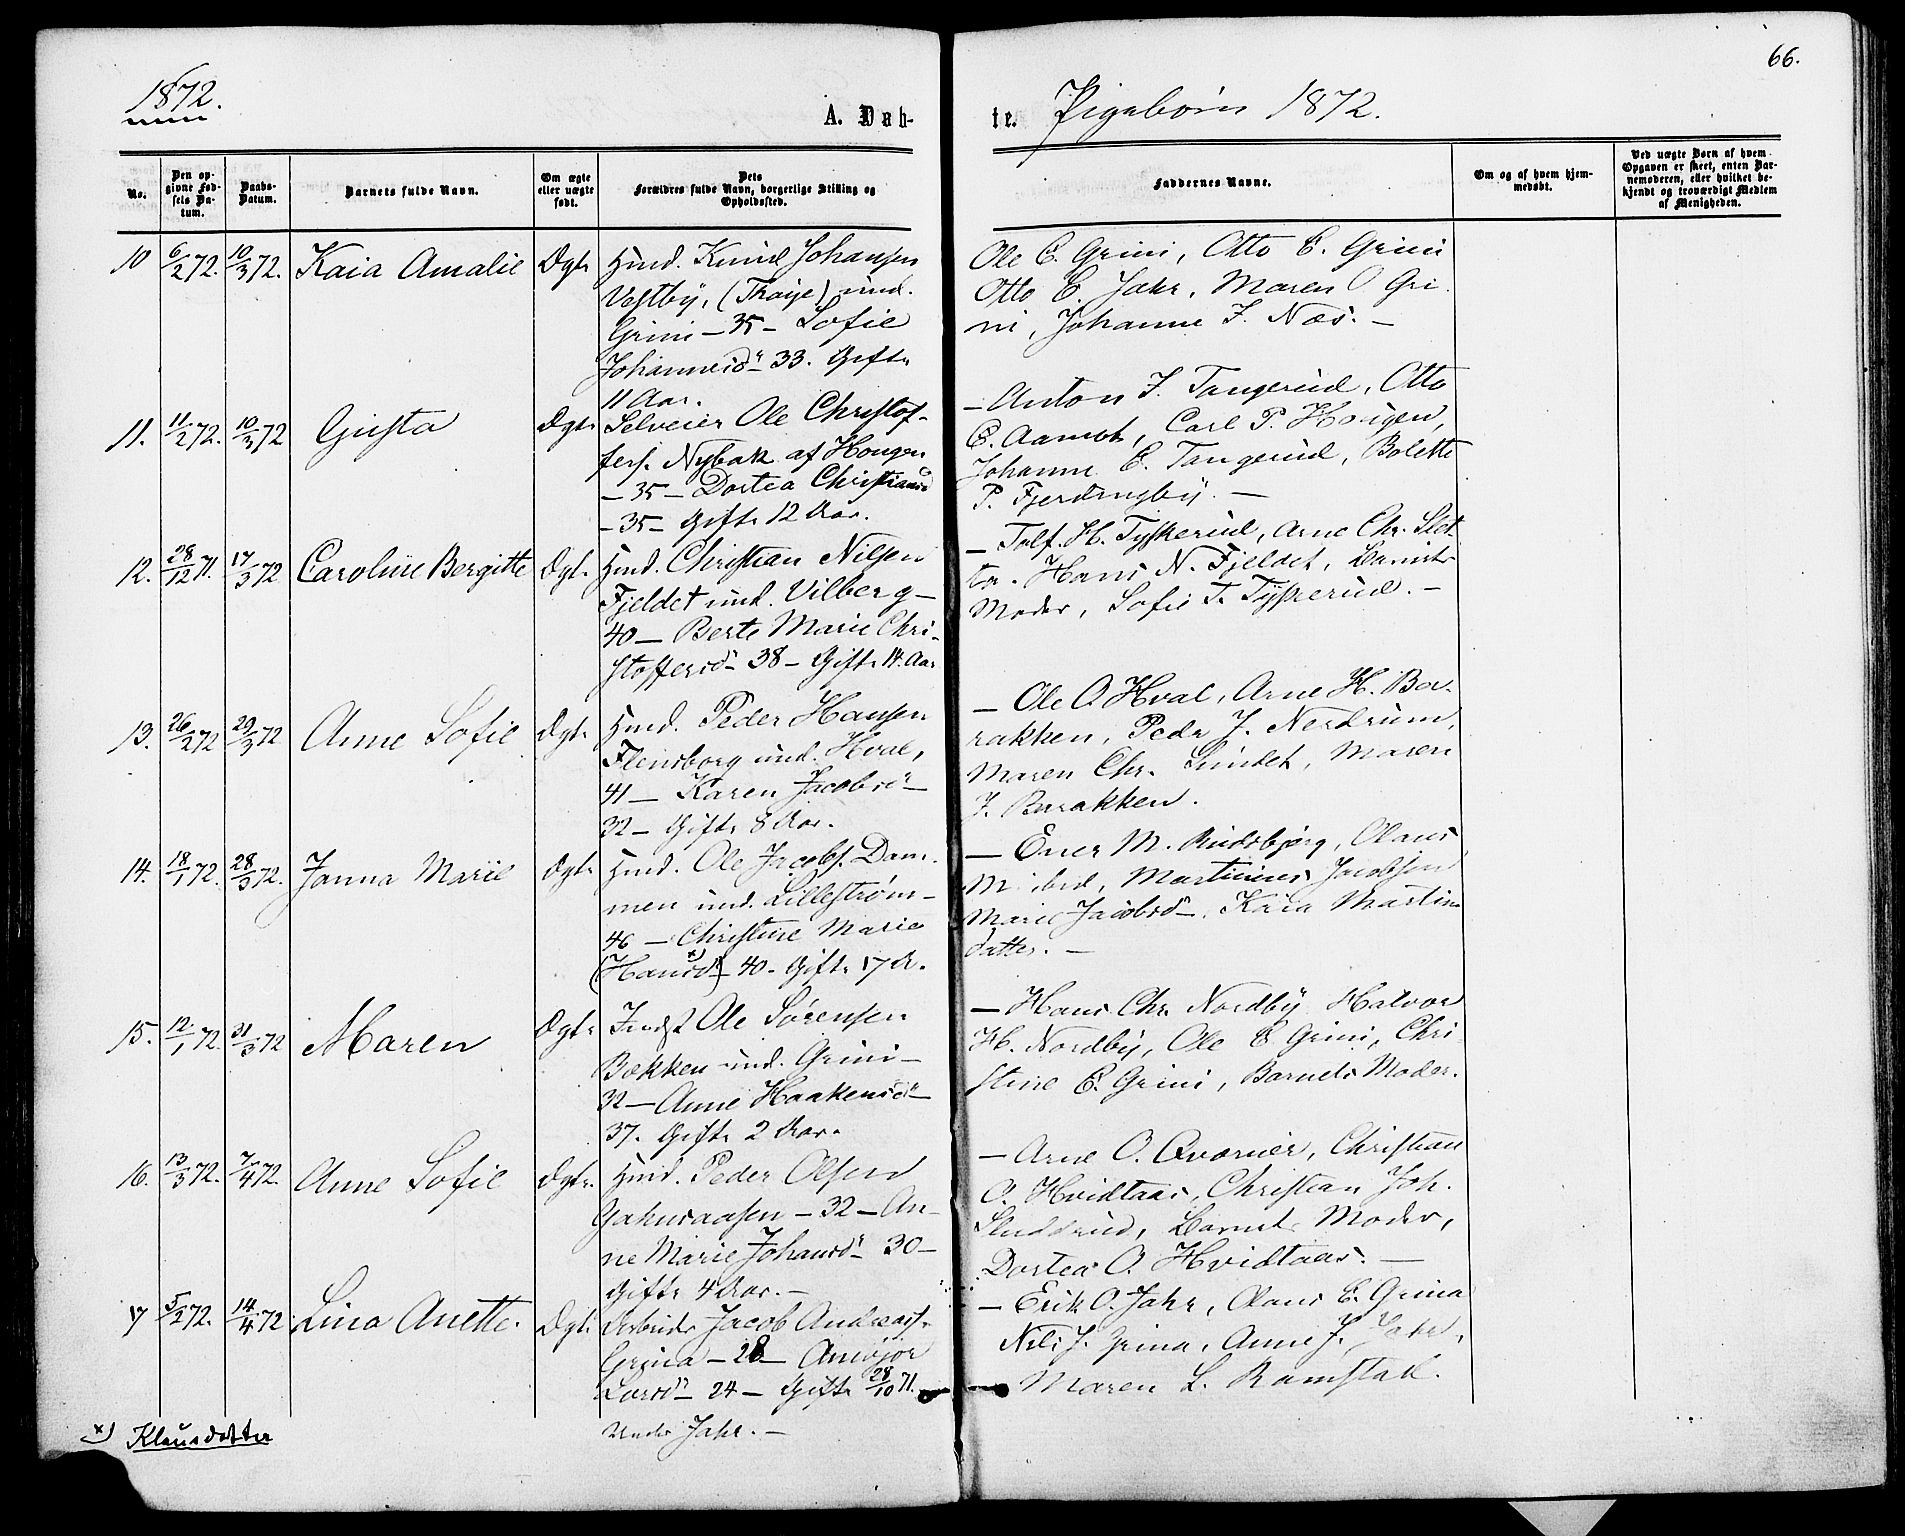 66.
1872.
A. Døb-
te. Pigebörn 1872.
No.
Den op-
givne Fød-
sels Da-
tum.
Daabs-
Datum.
Barnets fulde Navn.
Om ægte
eller uægte
født.
Dets
Forældres fulde Navn, borgerlige Stilling og
Opholdssted.
Faddernes Navne.
Om og af hvem hjem-
medøbt.
Ved uægte Børn af hvem
Opgaven er skeet, enten Bar-
nemoderen, eller hvilket be-
kjendt og troværdigt Medlem
af Menigheden.
10 6/2 72. 10/3 72. Kaia Amalie Ægte Hmd. Knud Johansen
Vestby, (Thoije) und.
Grini – 35 – Sofie
Johannesd. 33. Gift
11 Aar.
Ole E. Grini, Otto E. Grini
Otto E. Jahr, Maren O Gri-
ni, Johanne J. Næs. –
11. 11/2 72. 10/3 72 Gusta Ægte Selveier Ole Christof-
fers. Nybak af Hougen
– 35 – Dortea Christiansd
– 35 – Gift 12 Aar.
– Anton J. Tangerud, Otto
E. Aamot, Carl P. Hougen,
Johanne E. Tangerud, Bolette
P. Fjerdingby. –
12. 28/12 71. 17/3 72 Caroline Bergitte Ægte Hmd. Christian Nilsen
Fjeldet und. Vilberg –
40 – Berte Marie Chri-
stoffersd – 38 – Gift 14. Aar
– Tolf. H. Tyskerud, Arne Chr. Slet-
ta. Hans N. Fjeldet, Barnets
Moder, Sofie T. Tyskerud. –
13. 26/2 72 29/3 72 Anne Sofie Ægte Hmd. Peder Hansen
Flensborg und. Hval,
41 – Karen Jacobsd –
32 – Gift 8 Aar.
– Ole O Hval, Arne H. Ba-
rakken, Peder J. Nerdrum,
Maren Chr. Sundet, Maren
J. Barakken.
14. 18/1 72. 28/3 72. Janna Marie Ægte Hmd. Ole Jacobs. Dam-
men und. Lillestrøm –
46 – Christine Marie
(Hansd x) – 40 – Gift 17 A.
– Ener M. Rudsbjørg, Olaus
Martinus Jacobsen
Marie Jacobsd –, Kaia Martins
datter. –
15. 12/1 72. 31/3 72 Maren Ægte Indst Ole Sørensen
Bækken und. Grini –
32 – Anne Haakensd –
37. Gift 2 Aar.
– Hans Chr. Nordby Halvor
H. Nordby, Ole E Grini, Chri-
stine E. Grini, Barnets Moder.
16. 13/3 72. 7/4 72. Anne Sofie Ægte. Hmd. Peder Olsen
Gahusaasen – 32 – An-
ne Marie Johansd – 30 –
Gift 4 Aar. –
– Arne O. Qvernier, Christian
O. Hvidtaas, Christian Joh.
Sluddrud, Barnets Moder,
Dortea O. Hvidtaas. –
17 5/2 72. 14/4 72 Lina Anette. Ægte Arbeider Jacob Andreas.
Grina – 28 – Ansjør
Larsd – 24 – Gift 28/10 71.
Under Jahr. –
– Erik O. Jahr, Olaus E. Grina
Nils J. Grina, Anne J. Jahr,
Maren L. Ramstad.
x) Klausdatter